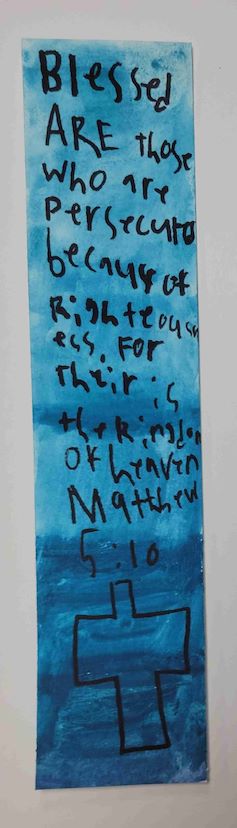 Blessed
ARE those
who are
persecuto
because of
Righteousn
ess. For
Their is
the Kingdom
of heaven
Matthew
5:10